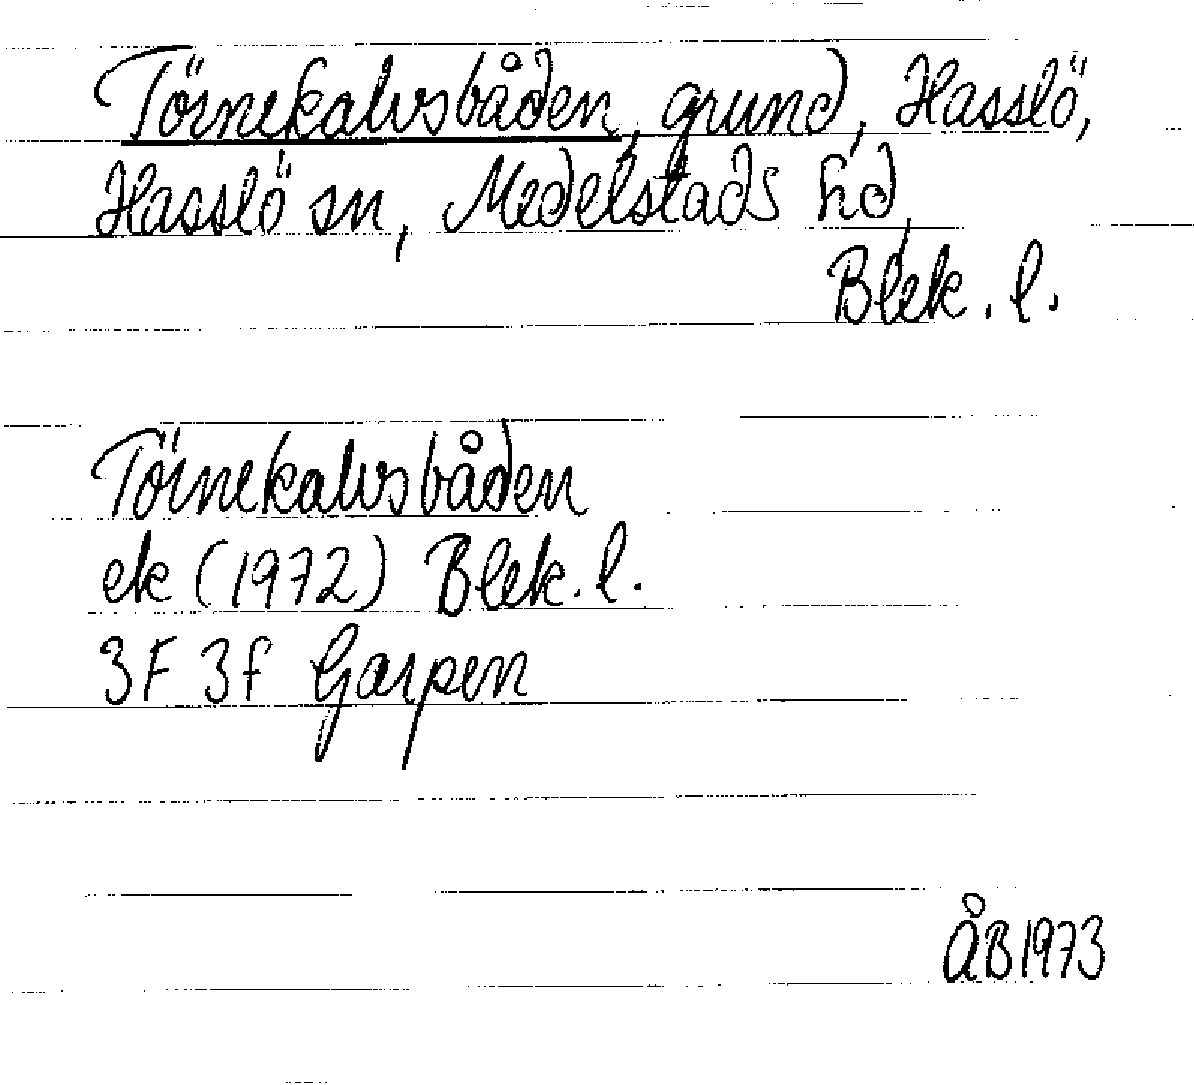 Törnekalvsbåden, grund, Hasslö,
Hasslö sn, Medelstads hd,
Blek. l.
Törnekalvsbåden
ek (1972) Blek. l.
3F 3f Garpen
ÅB 1973